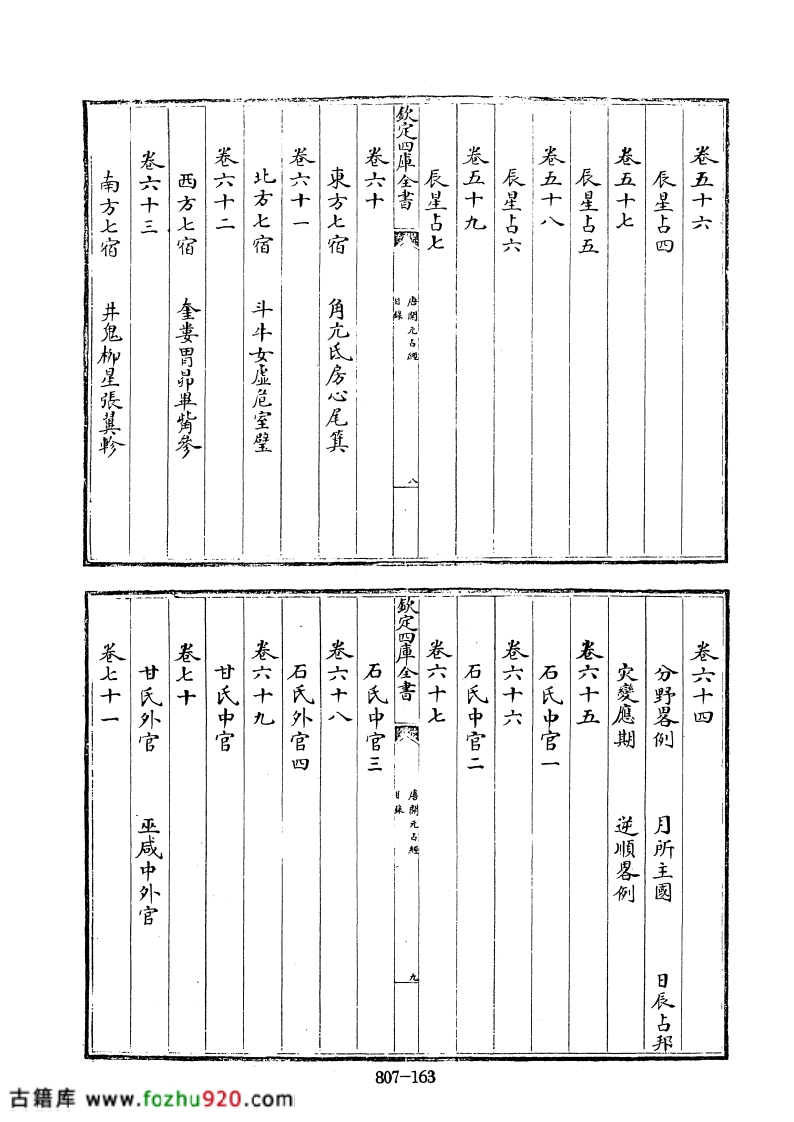 卷五十六
辰星占四
卷五十七
辰星占五
卷五十八
辰星占六
卷五十九
辰星占七
欽定四庫全書
唐開元占經
目錄
八
卷六十
東方七宿 角亢氐房心尾箕
卷六十一
北方七宿 斗牛女虛危室壁
卷六十二
西方七宿 奎婁胃昴畢觜參
卷六十三
南方七宿 井鬼柳星張翼軫
卷六十四
分野畧例 月所主國 日辰占邦
灾變應期 逆順畧例
卷六十五
石氏中官一
卷六十六
石氏中官二
卷六十七
欽定四庫全書
唐開元占經
目錄
九
石氏中官三
卷六十八
石氏外官四
卷六十九
甘氏中官
卷七十
甘氏外官 巫咸中外官
卷七十一
807-163
古籍库 www.fozhu920.com